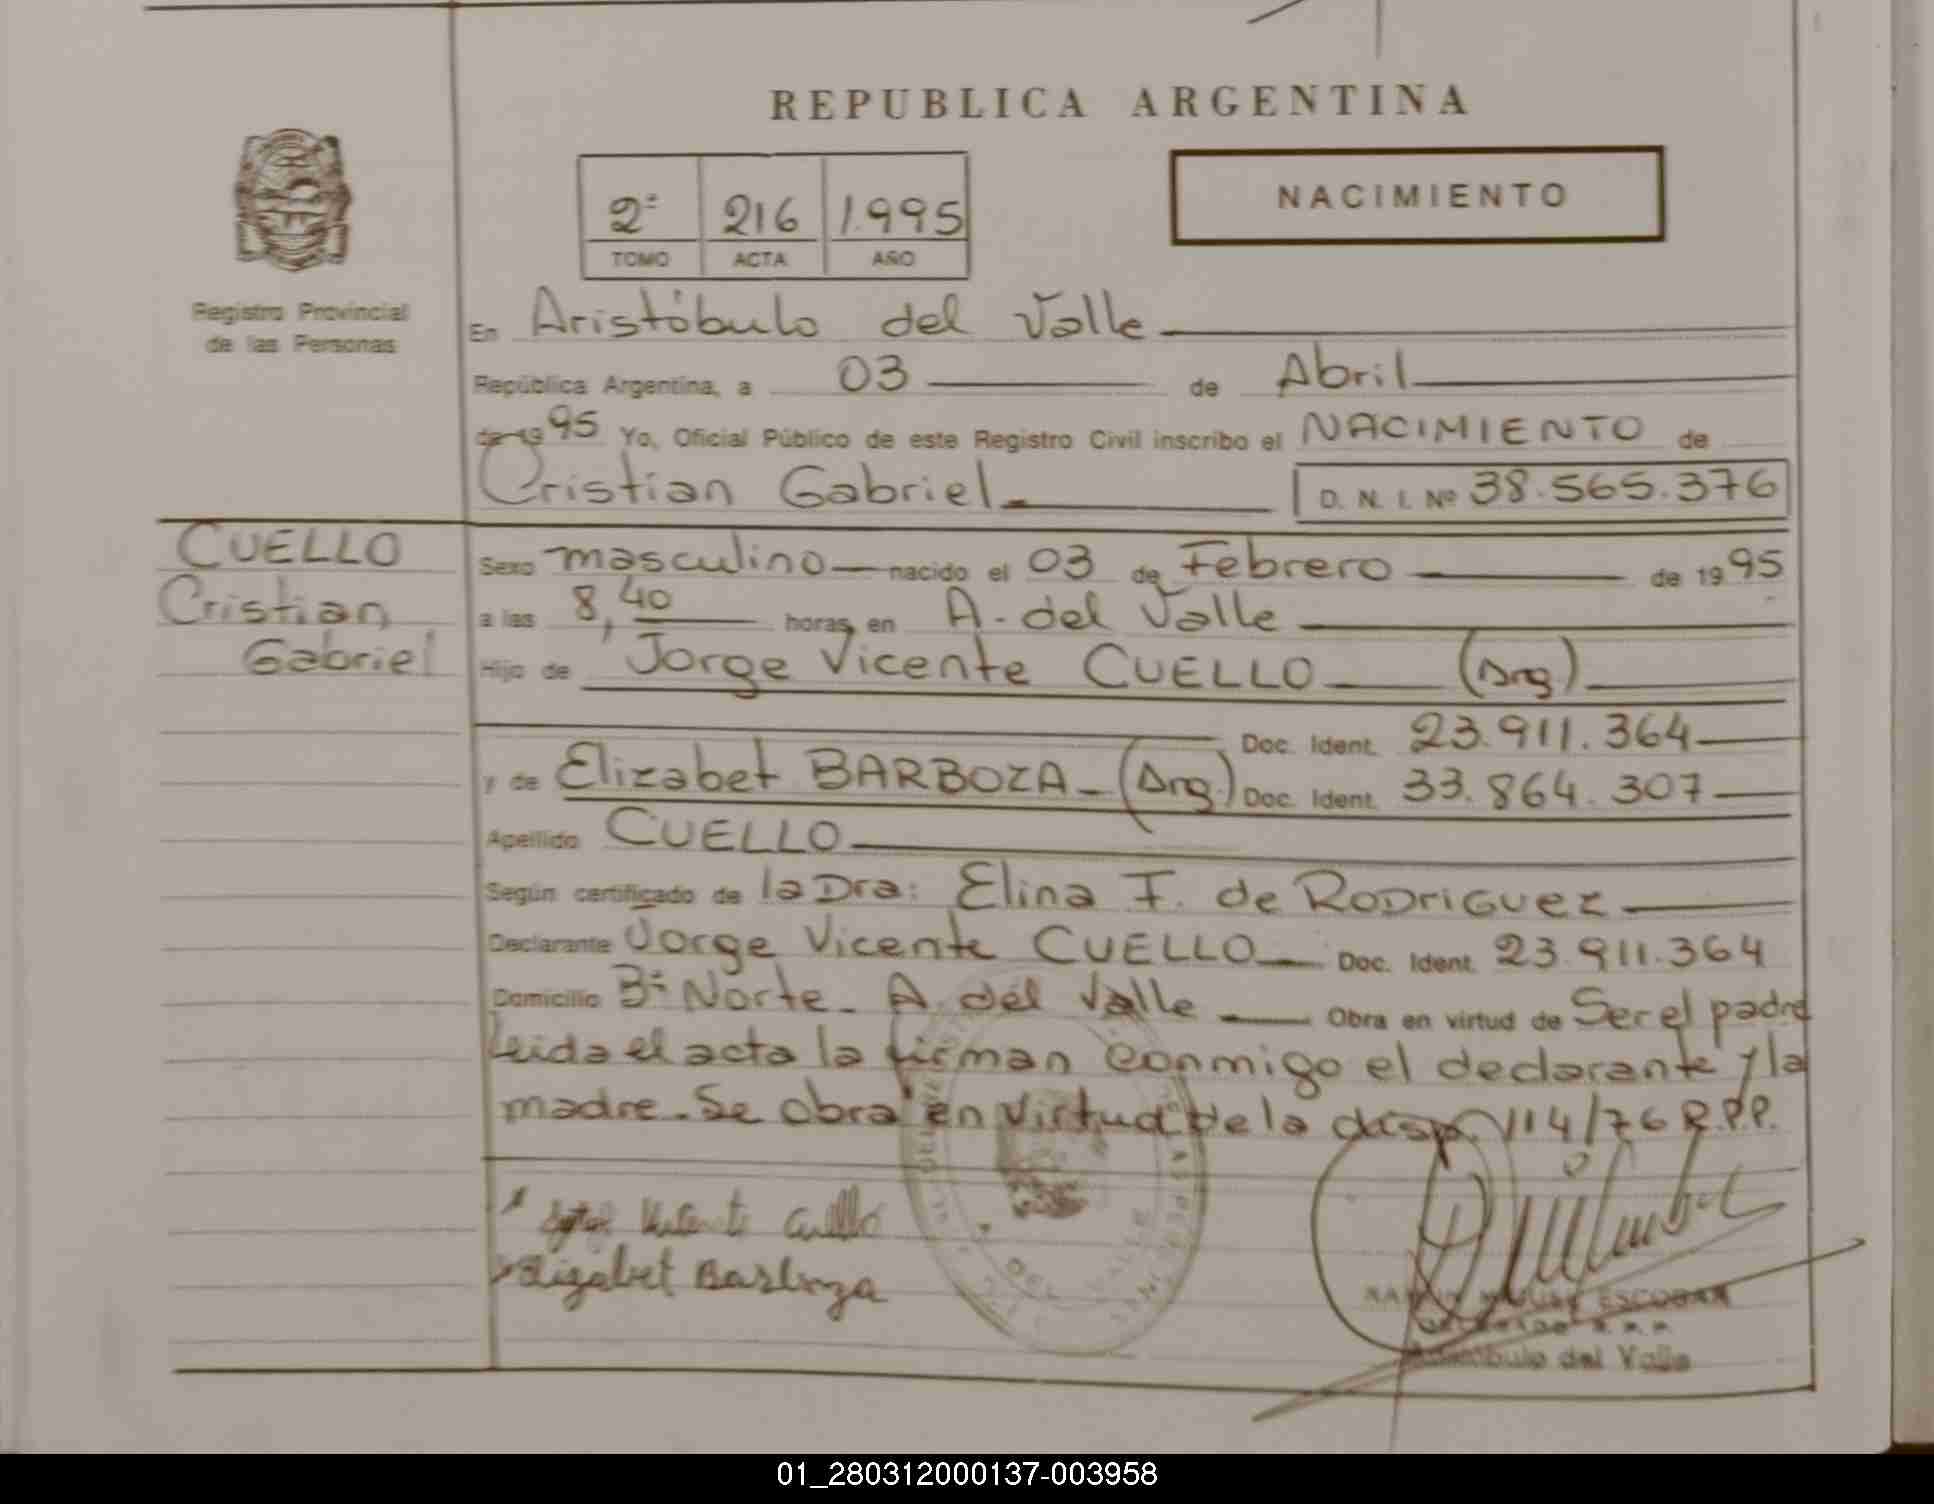 REPUBLICA ARGENTINA
NACIMIENTO
2ª 216 1.995
TOMO ACTA AÑO
Registro Provincial
de las Personas
En Aristóbulo del Valle
República Argentina, a 03 de Abril
de 19 95 Yo, Oficial Público de este Registro Civil inscribo el NACIMIENTO de
Cristian Gabriel D. N. I. Nº 38.565.376
CUELLO
Cristian
Gabriel
Sexo masculino nacido el 03 de Febrero de 19 95
a las 8,40 horas, en A. del Valle
Hijo de Jorge Vicente CUELLO (Arg.)
Doc. Ident. 23.911.364
y de Elizabet BARBOZA (Arg.) Doc. Ident. 33.864.307
Apellido CUELLO
Según certificado de la Dra: Elina F. de RODRIGUEZ
Declarante Jorge Vicente CUELLO Doc. Ident. 23.911.364
Domicilio Bº Norte - A. del Valle Obra en virtud de Ser el padre
leida el acta la firman conmigo el declarante y la
madre. Se obra en virtud de la disp. 114/76 R.P.P.
Vicente Cuello
Elizabet Barboza
DEL VALLE
ESCOBAR
Aristóbulo del Valle
01_280312000137-003958